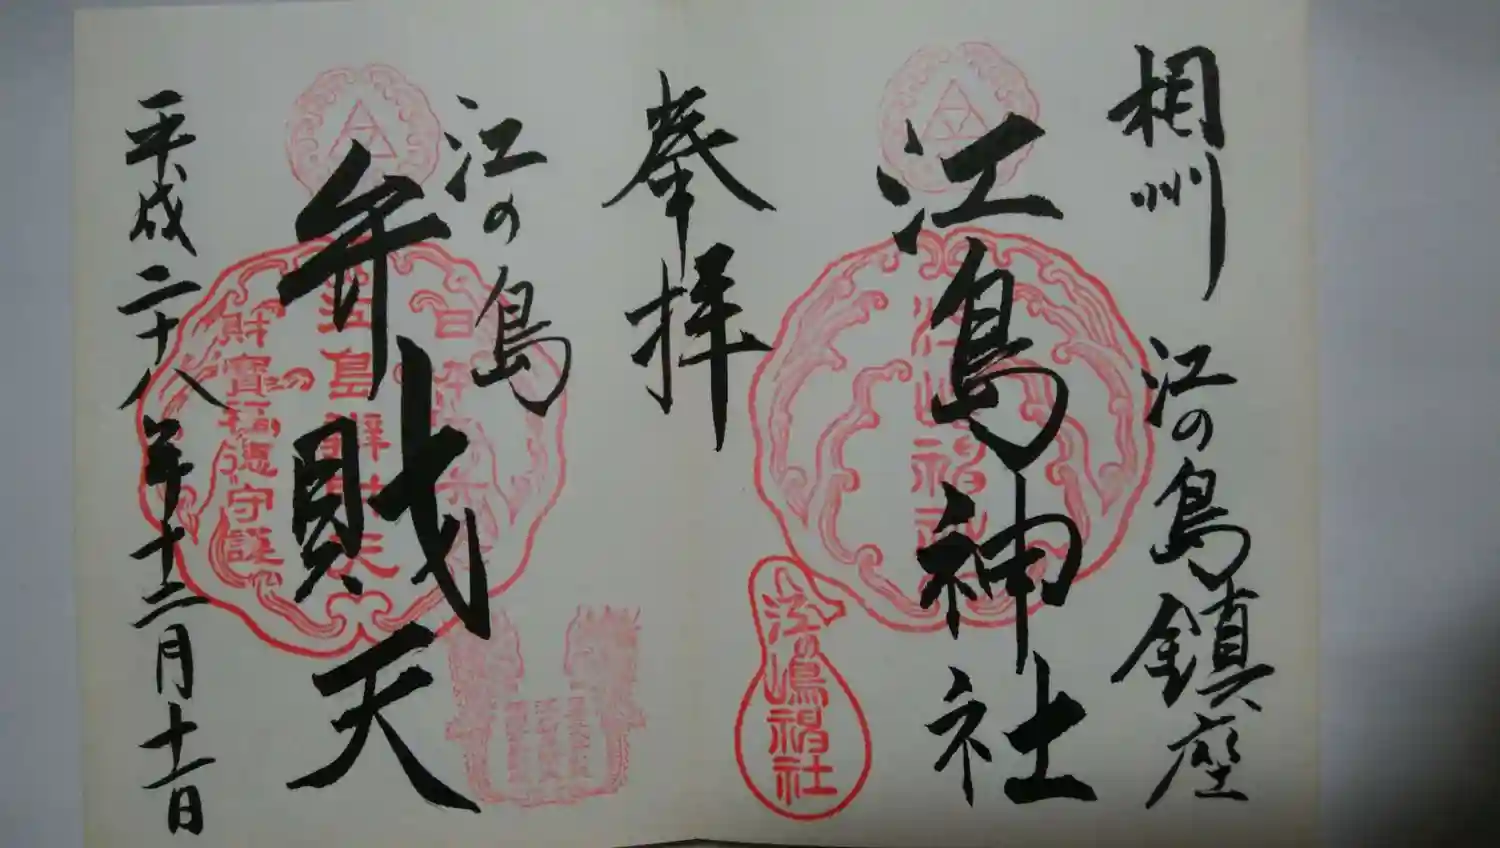 相州 江の島鎮座
江島神社
江嶋神社
江の嶋神社
奉拝
江の島
弁財天
江島辨財天
財寶福徳守護
平成二十八年十二月十一日